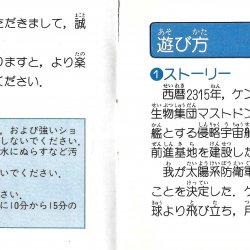 だきまして，誠
りますと、より楽
ださい。
、および強いショ
しないでください。
水にぬらすなど汚
いでください。
さい。
に10分から15分の
遊び方
❶ストーリー
西暦2315年，ケン
生物集団マストドン
艦とする侵略宇宙船
前進基地を建設した
我が太陽系防衛軍
ことを決定した．ケ
球より飛び立ち，月